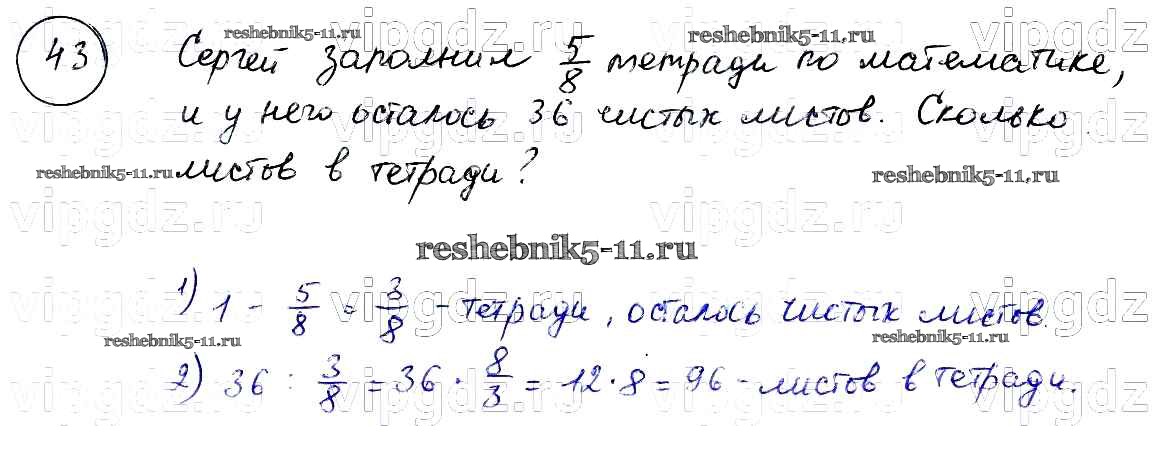 43 Сергей заполнил 5/8 тетради по математике,
и у него осталось 36 чистых листов. Сколько
листов в тетради?
reshebnik5-11.ru
1) 1 - 5/8 = 3/8 - тетради, осталось чистых листов.
2) 36 : 3/8 = 36 · 8/3 = 12 · 8 = 96 - листов в тетради.